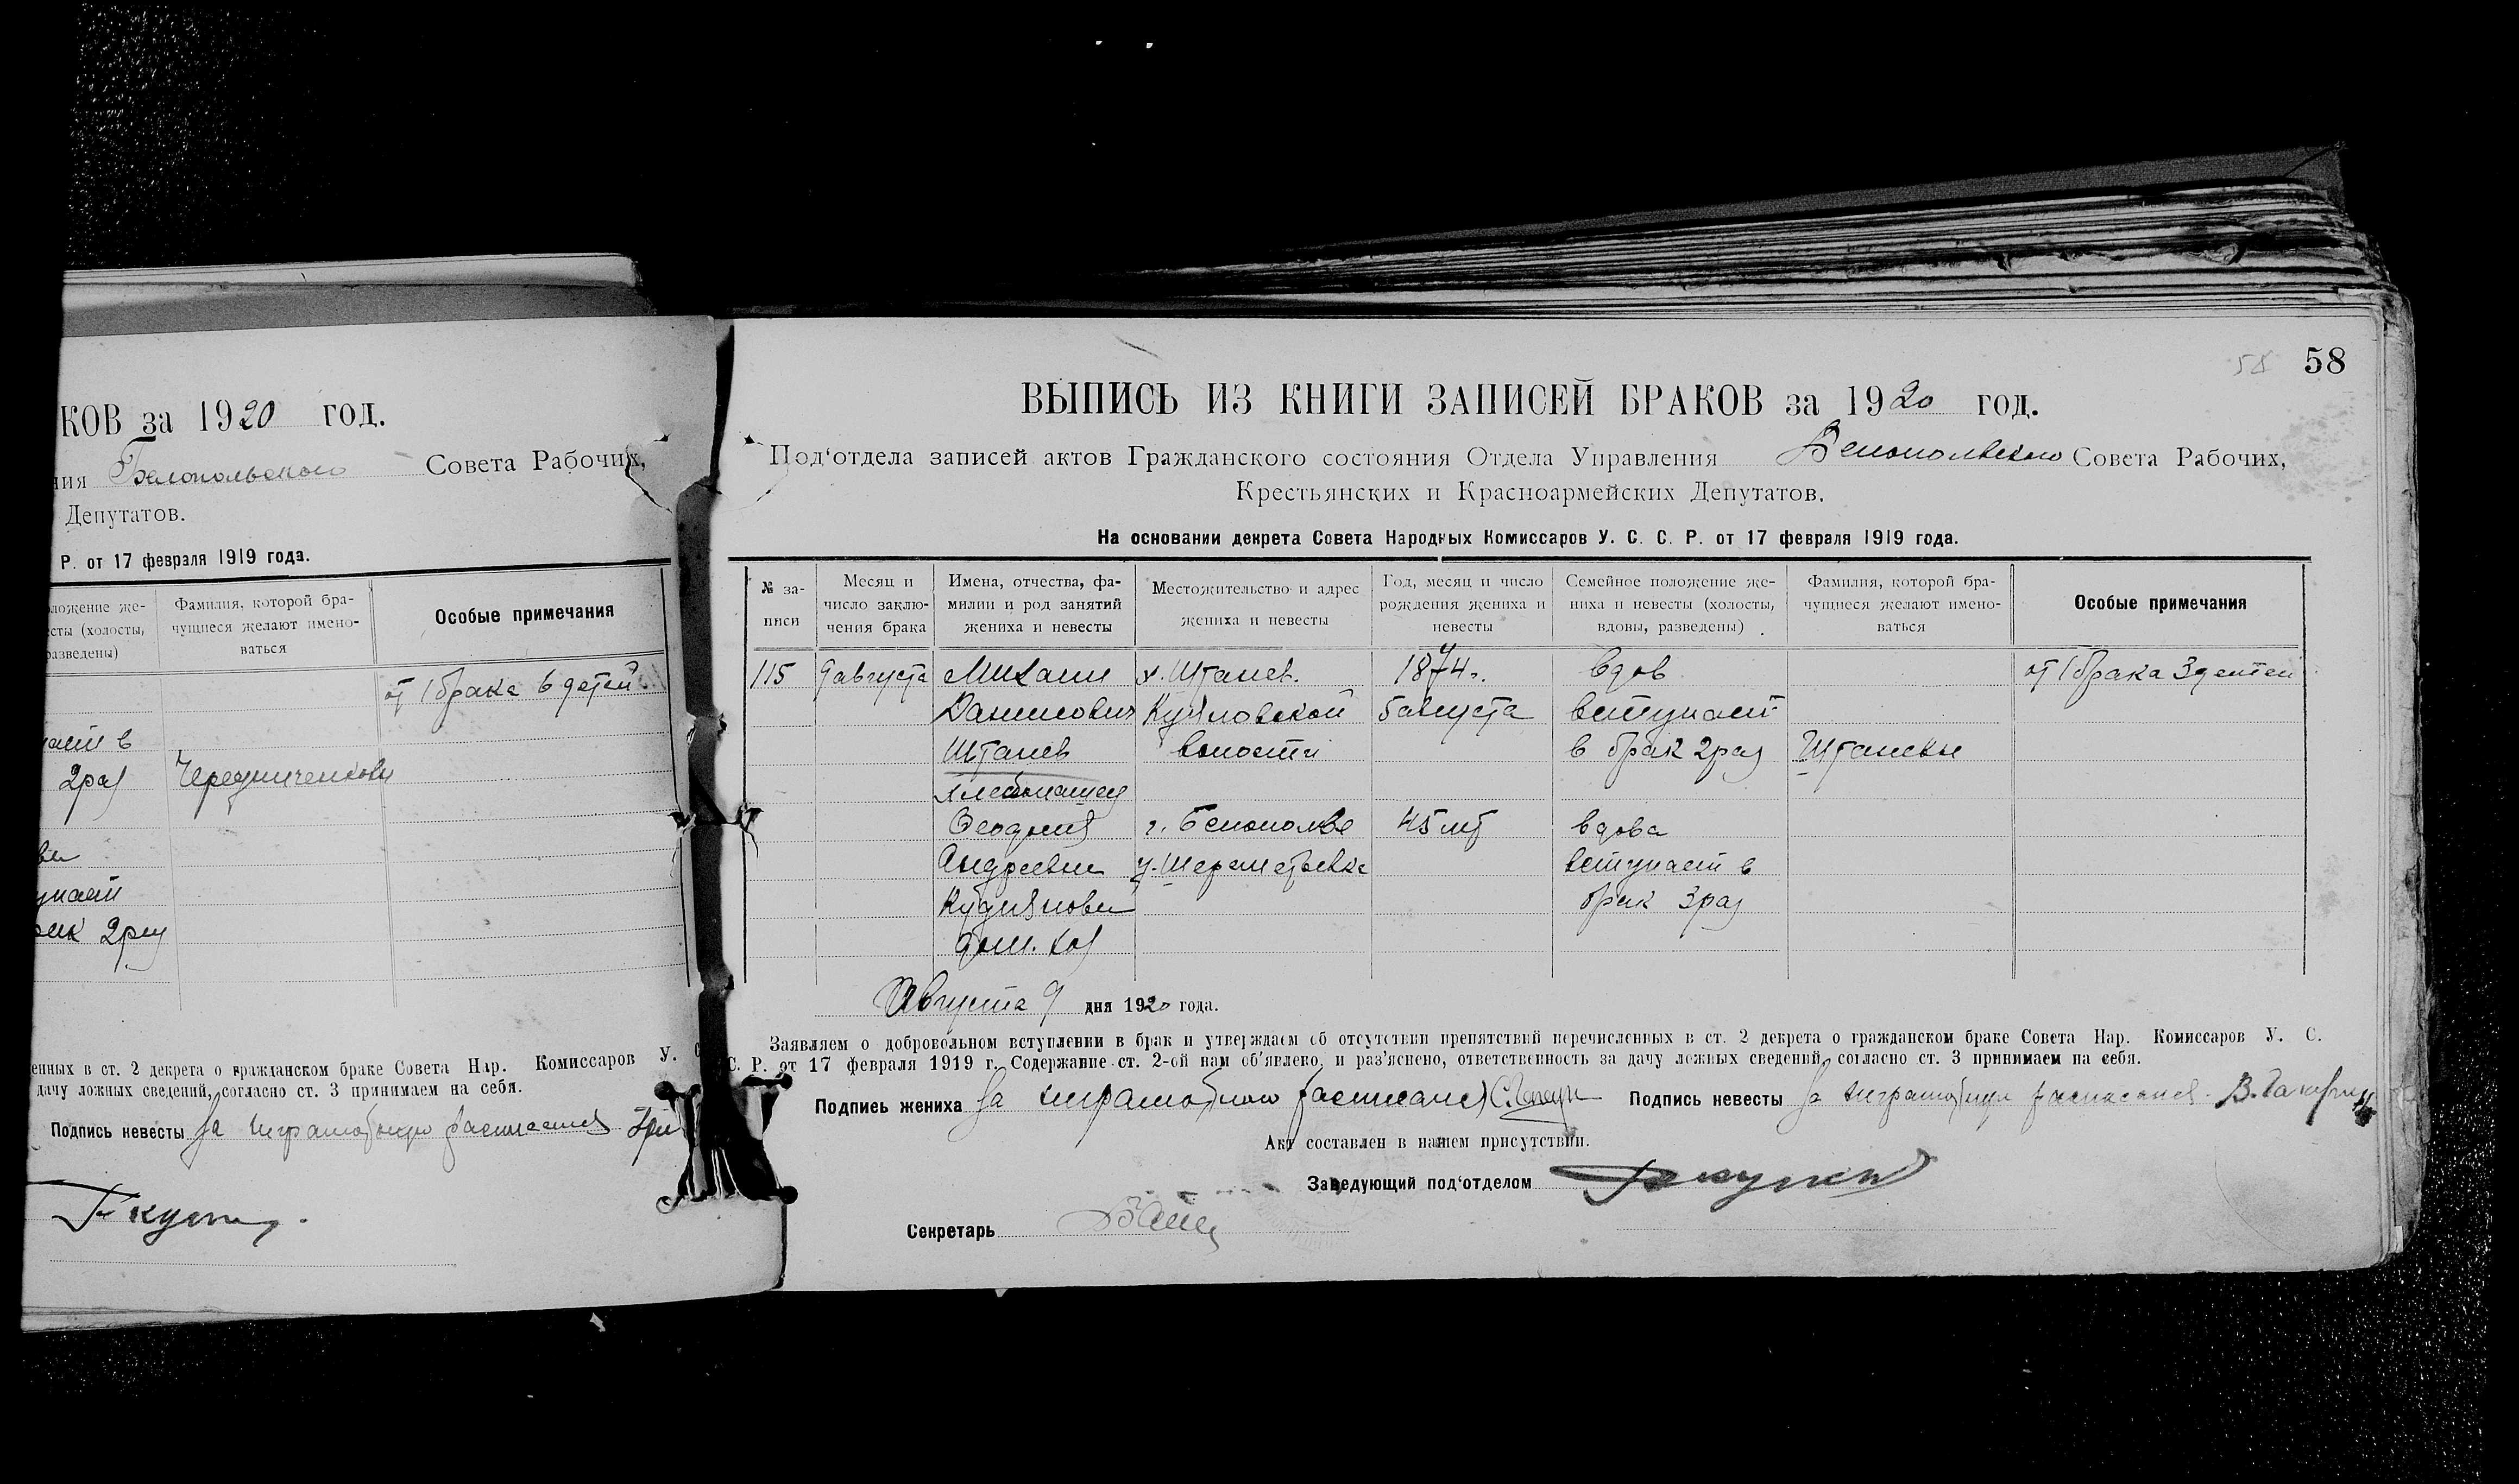 КОВ за 1920 год.
ния Белопольского Совета Рабочих,
Депутатов.
Р. от 17 февраля 1919 года.
ложение же-
есты (холосты,
разведены)
Фамилия, которой бра-
чущиеся желают имено-
ваться
Особые примечания
от 1 брака 6 детей.
в
2 раз
2 раз
енных в ст. 2 декрета о гражданском браке Совета Нар. Комиссаров У. С
дачу ложных сведений, согласно ст. 3 принимаем на себя.
Подпись невесты за неграмотную
58 58
ВЫПИСЬ ИЗ КНИГИ ЗАПИСЕЙ БРАКОВ за 1920 год.
Под‘отдела записей актов Гражданского состояния Отдела Управления Белопольского Совета Рабочих,
Крестьянских и Красноармейских Депутатов.
На основании декрета Совета Народных Комиссаров У. С. С. Р. от 17 февраля 1919 года.
№ за-
писи
Месяц и
число заклю-
чения брака
Имена, отчества, фа-
милии и род занятий
жениха и невесты
Местожительство и адрес
жениха и невесты
Год, месяц и число
рождения жениха и
невесты
Семейное положение же-
ниха и невесты (холосты,
вдовы, разведены)
Фамилия, которой бра-
чущиеся желают имено-
ваться
Особые примечания
115 9 августа Михаил х. Штанев. 1874 г. вдов от 1 брака 3 детей
Данилович 5 августа вступает
Штанев волости в брак 2 раз Штаневы
хлебопашец
Феодосия г. Белополье 45 лет вдова
Андреевна у. Шереметьевка вступает в
брак 3 раз
дом. хоз
Августа 9 дня 1920 года.
Заявляем о добровольном вступлении в брак и утверждаем об отсутствии препятствий перечисленных в ст. 2 декрета о гражданском браке Совета Нар. Комиссаров У. С.
С. Р. от 17 февраля 1919 г. Содержание ст. 2-ой нам об'явлено, и раз'яснено, ответственность за дачу ложных сведений, согласно ст. 3 принимаем на себя.
Подпись жениха за неграмотного расписался Подпись невесты за неграмотную расписался
Акт составлен в нашем присутствии.
Заведующий под‘отделом
Секретарь